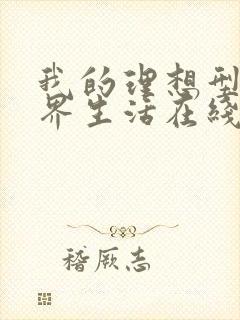 我的理想型
界生活在线
稽厥志